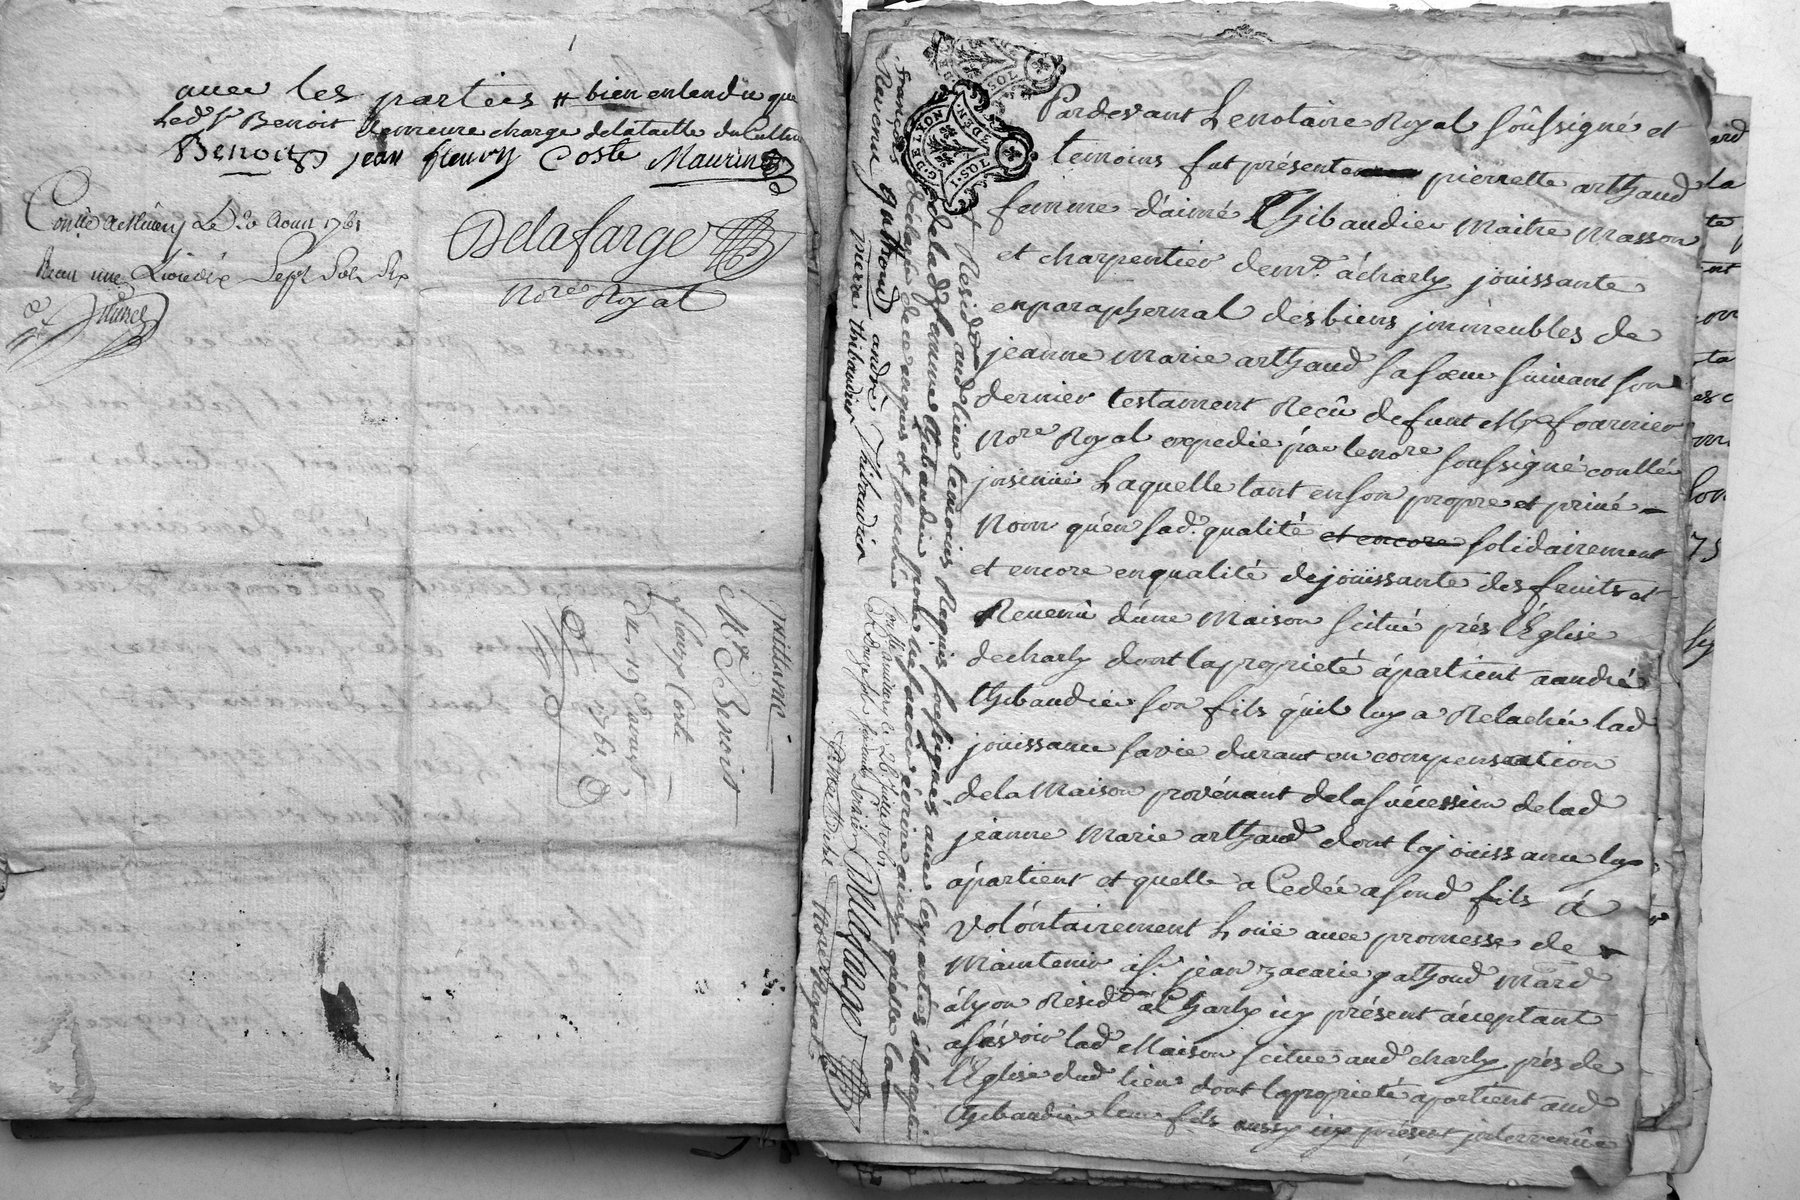 avec les parties # bien entendu que
Led. Sr Benoit demeure charge de la taille du Cultur
Benoist jean fleury Coste Maurin
Conllé a Millery Le 20 Aoust 1761
Reçu une Livre Sept Sols Six
Delafarge
Nore Royal
quittance
Mr Benoit
fleury Coste
Du 19 Aoust
1761
Pardevant Le notaire Royal soussigné et
temoins fut présente pierrette arthaud
femme d'aimé Thibaudier Maitre Masson
et charpentier demt. á charly jouissante
en paraphernal des biens jmmeubles de
jeanne Marie arthaud sa sœur suivant son
dernier testament Reçû defunt Mre fournier
Nore Royal expedié par le nore soussigné conllé
jnsinué Laquelle tant en son propre et privé
Nom qu'en sad. qualité et encore solidairement
et encore en qualité de joüissante des fruits et
Revenu d'une Maison scitué prés l'Église
de charly dont la proprieté ápartient a andré
thibaudier son fils qu'il luy a Relaché lad
joüissance sa vie durant en compensation
de la Maison provénant de la succession de lad
jeanne Marie arthaud dont la joüissance luy
ápartient et quelle a Cedée a sond fils á
volontairement Loüé avec promesse de
Maintenir á Sr. jean zacarie gathoud Mard
á lyon Résidt á Charly icy présent ácceptant
a sçavoir lad Maison scitué aud. charly prés de
l'Eglise dud lieu dont la proprieté apartient aud
thibaudier leur fils aussy icy présent jntervenüe
et Residt aud lieu temoins Requis soussignés avec les parties
de lad femme thibaudier pour ne sçavoir écrire ainsy qu'elle la
déclaré de ce enquis et
françois gathoud andré Thibaudier
Ravenu pierre thibaudier
Delafarge
Nore Royal